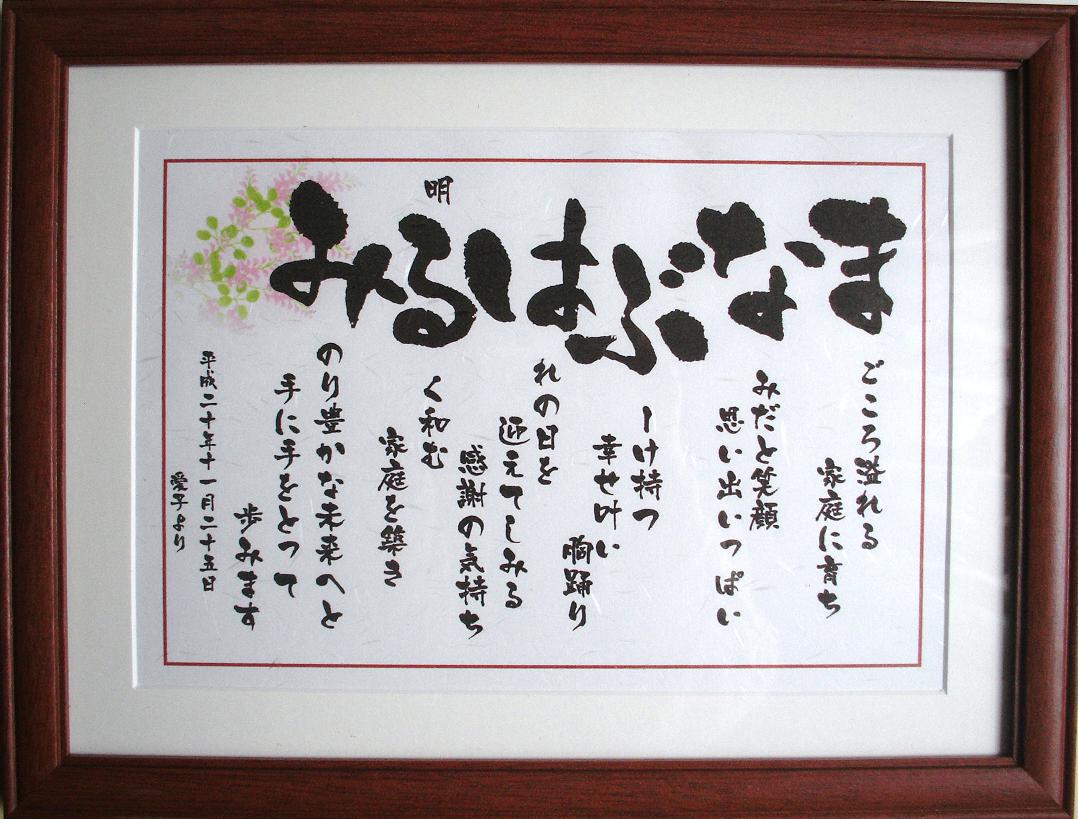 まごころ溢れる
家庭に育ち
なみだと笑顔
思い出いっぱい
ぶーけ持つ
幸せ叶い
胸踊り
はれの日を
迎えてしみる
感謝の気持ち
明るく和む
家庭を築き
みのり豊かな未来へと
手に手をとって
歩みます
平成二十年十一月二十五日
愛子より